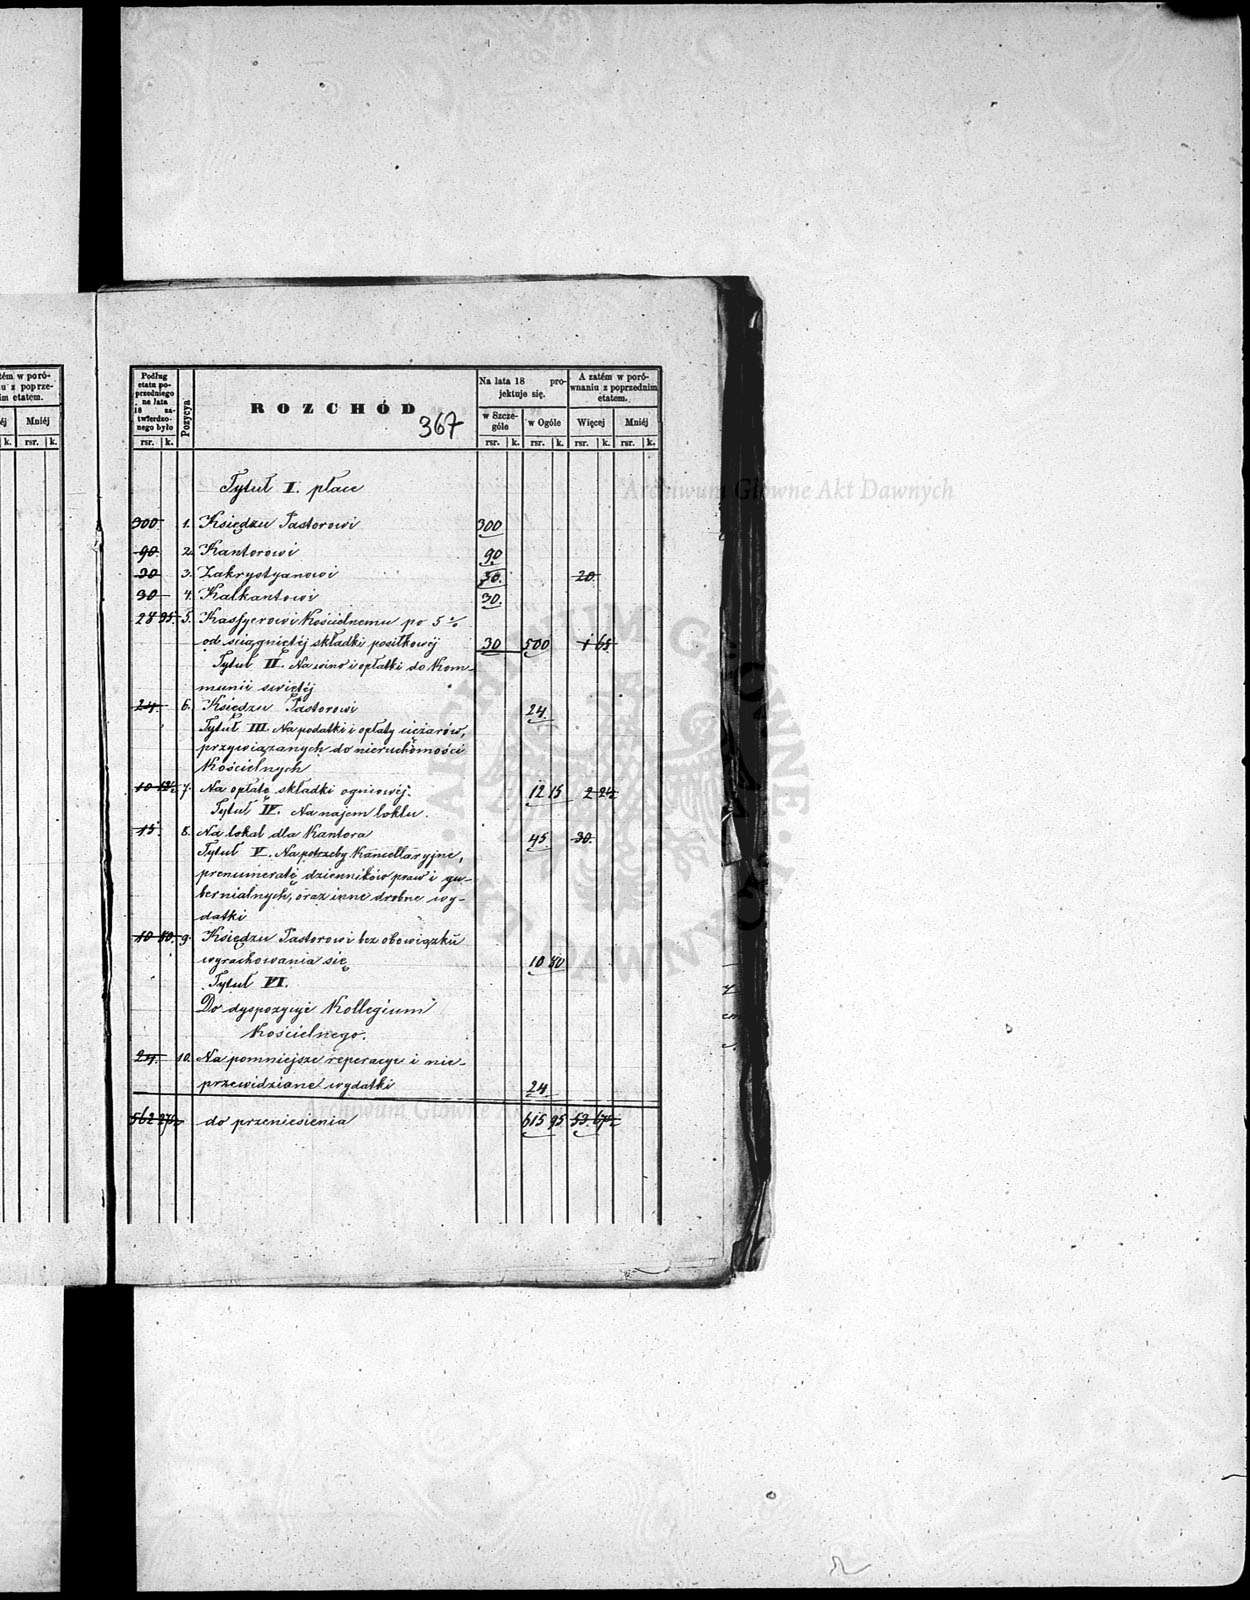 tém w poró-
u z poprze-
im etatem.
éj Mniéj
k. rsr. k.
Podług etatu po- przedniego na lata 18 za- twierdzo- nego było
Pozycya
ROZCHÓD
367
Na lata 18 pro-
jektuje się.
A zatém w poró-
wnaniu z poprzednim
etatem.
w Szcze- góle w Ogóle Więcej Mniéj
rsr. k. rsr. k. rsr. k. rsr. k. rsr. k.
Tytuł I. płace
300 1. Księdzu Pastorowi 300
90 2. Kantorowi 90
30 3. Zakrystyanowi 30. 20
30 4. Kalkantowi 30.
28 35 5. Kassyerowi Kościelnemu po 5 %
od ściągniętéj składki posiłkowéj 30 500 1 65
Tytuł II. Na wino i opłatki do Kom-
munii świętéj
24. 6. Księdzu Pastorowi 24.
Tytuł III. Na podatki i opłaty ciężarów,
przywiązanych do nieruchomości
Kościelnych
10 12½ 7. Na opłatę składki ogniowéj. 12 15 2 2½
Tytuł IV. Na najem loklu.
15. 8. Na lokal dla Kantora 45. 30.
Tytuł V. Na potrzeby Kancellaryjne,
prenumeratę dzienników praw i gu-
bernialnych, oraz inne drobne wy-
datki
10 80. 9. Księdzu Pastorowi bez obowiązku
wyrachowania się 10 80
Tytuł VI.
Do dyspozycyi Kollegium
Kościelnego.
24. 10. Na pomniejsze reperacye i nie-
przewidziane wydatki 24
562 27½ do przeniesienia 615 95 53. 67½
Archiwum Główne Akt Dawnych
ARCHIWUM GŁÓWNE AKT DAWNYCH
Archiwum Główne Akt Dawnych